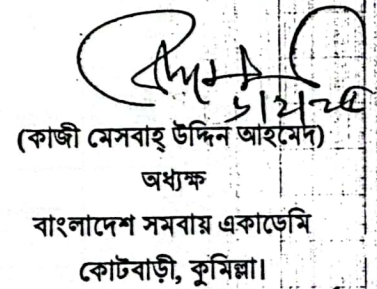 (কাজী মেসবাহ্ উদ্দিন আহমেদ)
অধ্যক্ষ
বাংলাদেশ সমবায় একাডেমি
কোটবাড়ী, কুমিল্লা।